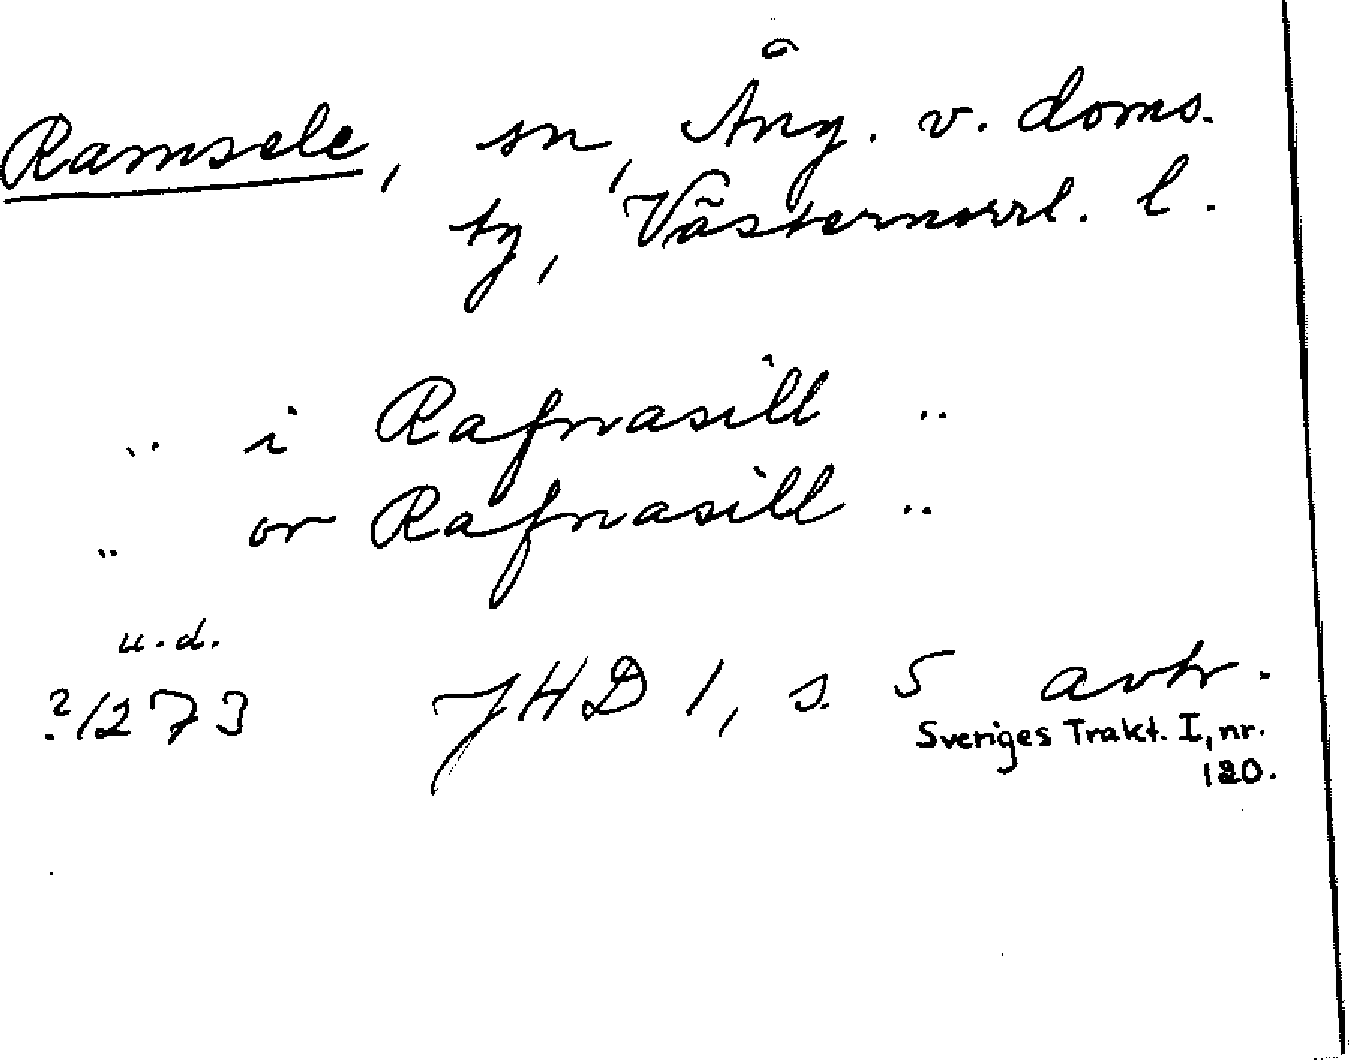 Ramsele, sn, Ång. v. doms.
tg, Västernorrl. l.
.. i Rafnasill ..
.. or Rafnasill ..
u.d.
?/1273 JHD 1, s. 5 avtr.
Sveriges Trakt. I, nr.
120.